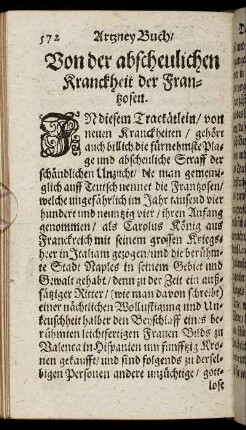 572 Artzney Buch/
Von der abscheulichen
Kranckheit der Fran-
tzosen.
IN diesem Tractätlein/ von
neuen Kranckheiten/ gehört
auch billich die fürnehmste Pla-
ge und abscheuliche Straff der
schändlichen Unzucht/ die man gemei-
niglich auff Teutsch nennet die Frantzosen/
welche ungefährlich im Jahr tausend vier
hundert und neuntzig vier/ ihren Anfang
genommen/ als Carolus König aus
Franckreich mit seinem grossen Kriegs-
her in Italiam gezogen/ und die berühm-
te Stadt Naples in seinem Gebiet und
Gewalt gehabt/ denn zu der Zeit ein auß-
sätziger Ritter/ (wie man davon schreibt)
einer nächtlichen Wollüstigung und Un-
keuschheit halber den Beyschlaff eines be-
rühmten leichtfertigen Frauen Bilds zu
Valenca in Hispanien um funfftzig Kro-
nen gekaufft/ und sind folgends zu dersel-
bigen Personen andere unzüchtige/ gott-
lose